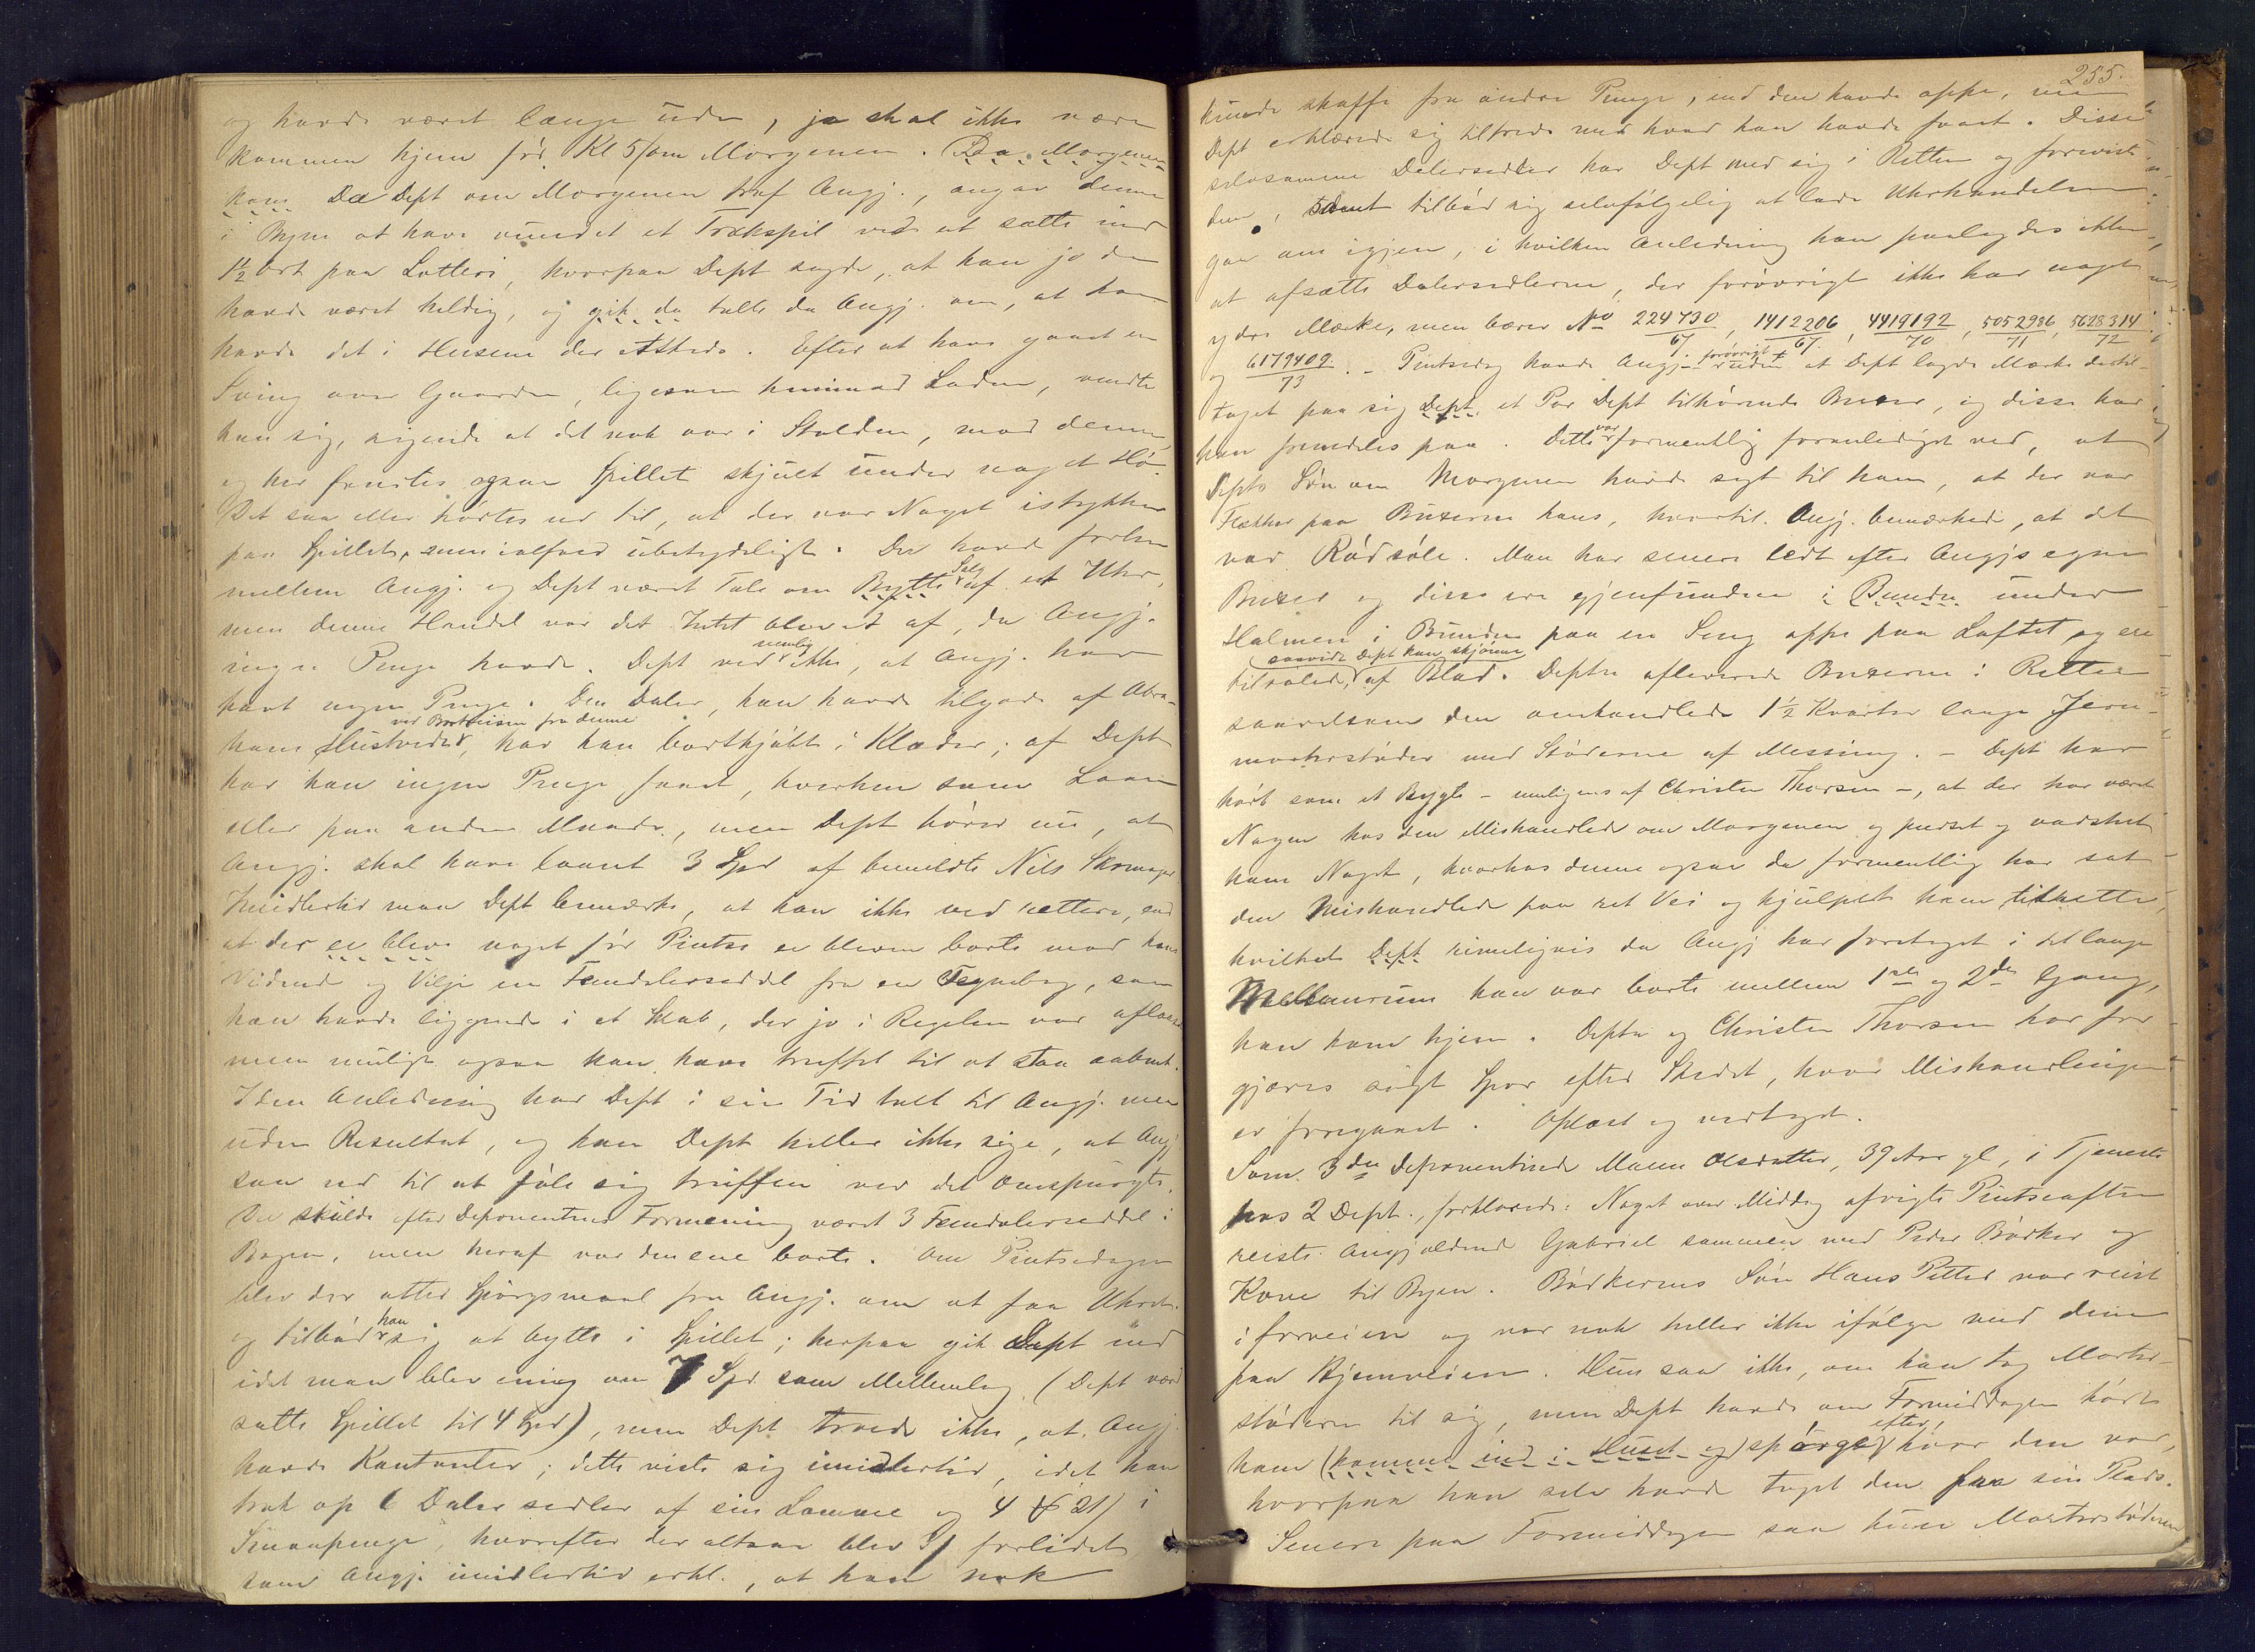 og havde været længe ude, ja skal ikke være
kommen hjem før Kl 5 om Morgenen. Da Morgenen
kom Da Dept om Morgenen traf Angj., angav denne
i Byen at have vundet et Trækspil ved at sætte ind
1½ ort paa Lotteri, hvorpaa Dept sagde, at han jo da
havde været heldig, og gik da talte da Angj. om, at han
havde det i Husene der etsteds. Efter at have gaaet en
Sving over Gaarden, ligesom henimod Laden, vendte
han sig, sigende at det nok var i Stalden, mod denne,
og her fandtes ogsaa Spillet skjult under noget Hø.
Det saa eller hørtes ud til, at der var Noget istykker
paa Spillet, men ialfald ubetydeligt. Der havde forhen
mellem Angj. og Dept været Tale om Bytte Salg af et Uhr,
men denne Handel var det Intet blevet af, da Angj.
ingen Penge havde. Dept ved nemlig ikke, at Angj. har
havt nogen Penge. Den Daler, han havde tilgode af Abra-
ham Hustvedt ved Bortreisen fra denne, har han bortkjøbt i Klæder; af Dept
har han ingen Penge faaet, hverken som Laan
eller paa anden Maade, men Dept hører nu, at
Angj. skal have laant 3 Spd af bemeldte Nils Skomager
Imidlertid maa Dept bemærke, at han ikke ved rettere, end
at der er blev noget før Pintse er bleven borte mod hans
Vidende og Vilje en Femdalerseddel fra en Tegnebog, som
han havde liggende i et Skab, der jo i Regelen var aflaaset
men muligt ogsaa kan have truffet til at staa aabent.
I den Anledning har Dept i sin Tid talt til Angj. men
uden Resultat, og kan Dept heller ikke sige, at Angj
saa ud til at føle sig truffen ved det omspurgte.
Der skulde efter Deponentens Formening været 3 Femdalerseddel i
Bogen, men heraf var den ene borte. Om Pintsedagen
blev der atter Spørgsmaal fra Angj. om at faa Uhret
og tilbød han sig at bytte i Spillet; herpaa gik Dept ind
idet man blev enig om 7 Spd. som Mellemlag (Dept værd
satte Spillet til 4 Spd), men Dept troede ikke, at Angj
havde Kontanter; dette viste sig imidlertid, idet han
trak op 6 Daler sedler af sin Lomme og 4 # 21 i
Smaapenge, hvorefter der altsaa blev forlidet,
som Angj. imidlertid erkl., at han nok
255.
kunde skaffe fra andre Penge, end den havde oppe, men
Dept erklærede sig tilfreds med hvad han havde faaet. Disse
selvsamme Dalersedler har Dept med sig i Retten og foreviste
dem, samt tilbød sig selvfølgelig at lade Uhrhandelen
gaa om igjen, i hvilken Anledning han paalagdes ikke
at afsætte Dalersedlerne, der forøvrigt ikke har noget
ydre Mærke, men bærer No 224730/67, 1412206/67, 4419192/70, 5052986/71, 5628314/72
og 6179409/73. – Pintsedag havde Angj. – forøvrigt uden at Dept lagde Mærke dertil –
taget paa sig Dept. et Par Dept tilhørende Buxer, og disse har
han fremdeles paa. Dette var formentlig foranlediget ved, at
Depts Søn om Morgenen havde sagt til ham, at der var
Flækker paa Buxerne hans, hvortil Angj. bemærkede, at det
var Rødsøle. Man har senere ledt efter Angjs egne
Buxer og disse ere gjenfundne i Bunden under
Halmen i Bunden paa en Seng oppe paa Loftet og ere
tilsølede, saavidt Dept kan skjønne af Blod. Deptn afleverede Buxerne i Retten
saavelsom den omhandlede 1½ Kvarter lange Jern-
morterstøder med Støderne af Messing. – Dept har
hørt som et Rygte – muligens af Christen Thorsen –, at der har været
Nogen hos den Mishandlede om Morgenen og pudset og vadsket
ham Noget, hvorhos denne ogsaa da formentlig har sat
den Mishandlede paa ret Vei og hjulpet ham tilrette,
hvilket Dept rimeligvis da Angj har foretaget i det lange
Mellemrum han var borte mellem 1ste og 2den Gang,
han kom hjem. Deptn og Christen Thorsen har for-
gjæves søgt Spor efter Stedet, hvor Mishandlingen
er foregaaet. Oplæst og vedtaget.
Som 3die Deponentinde Maren Olsdatter, 39 Aar gl, i Tjeneste
hos 2 Dept., forklarede: Noget over Middag afvigte Pintseaften
reiste Angjældende Gabriel sammen med Peder Bødker og
Kone til Byen. Bødkerens Søn Hans Petter var reist
i forveien og var nok heller ikke ifølge med dem
paa Hjemveien. Hun saa ikke, om han tog Morter-
støderen til sig, men Dept havde om Formiddagen hørt
ham (komme ind i Huset og) spørge efter, hvor den var,
hvorpaa han selv havde taget den fra sin Plads.
Senere paa Formiddagen saa hun Morterstøderen